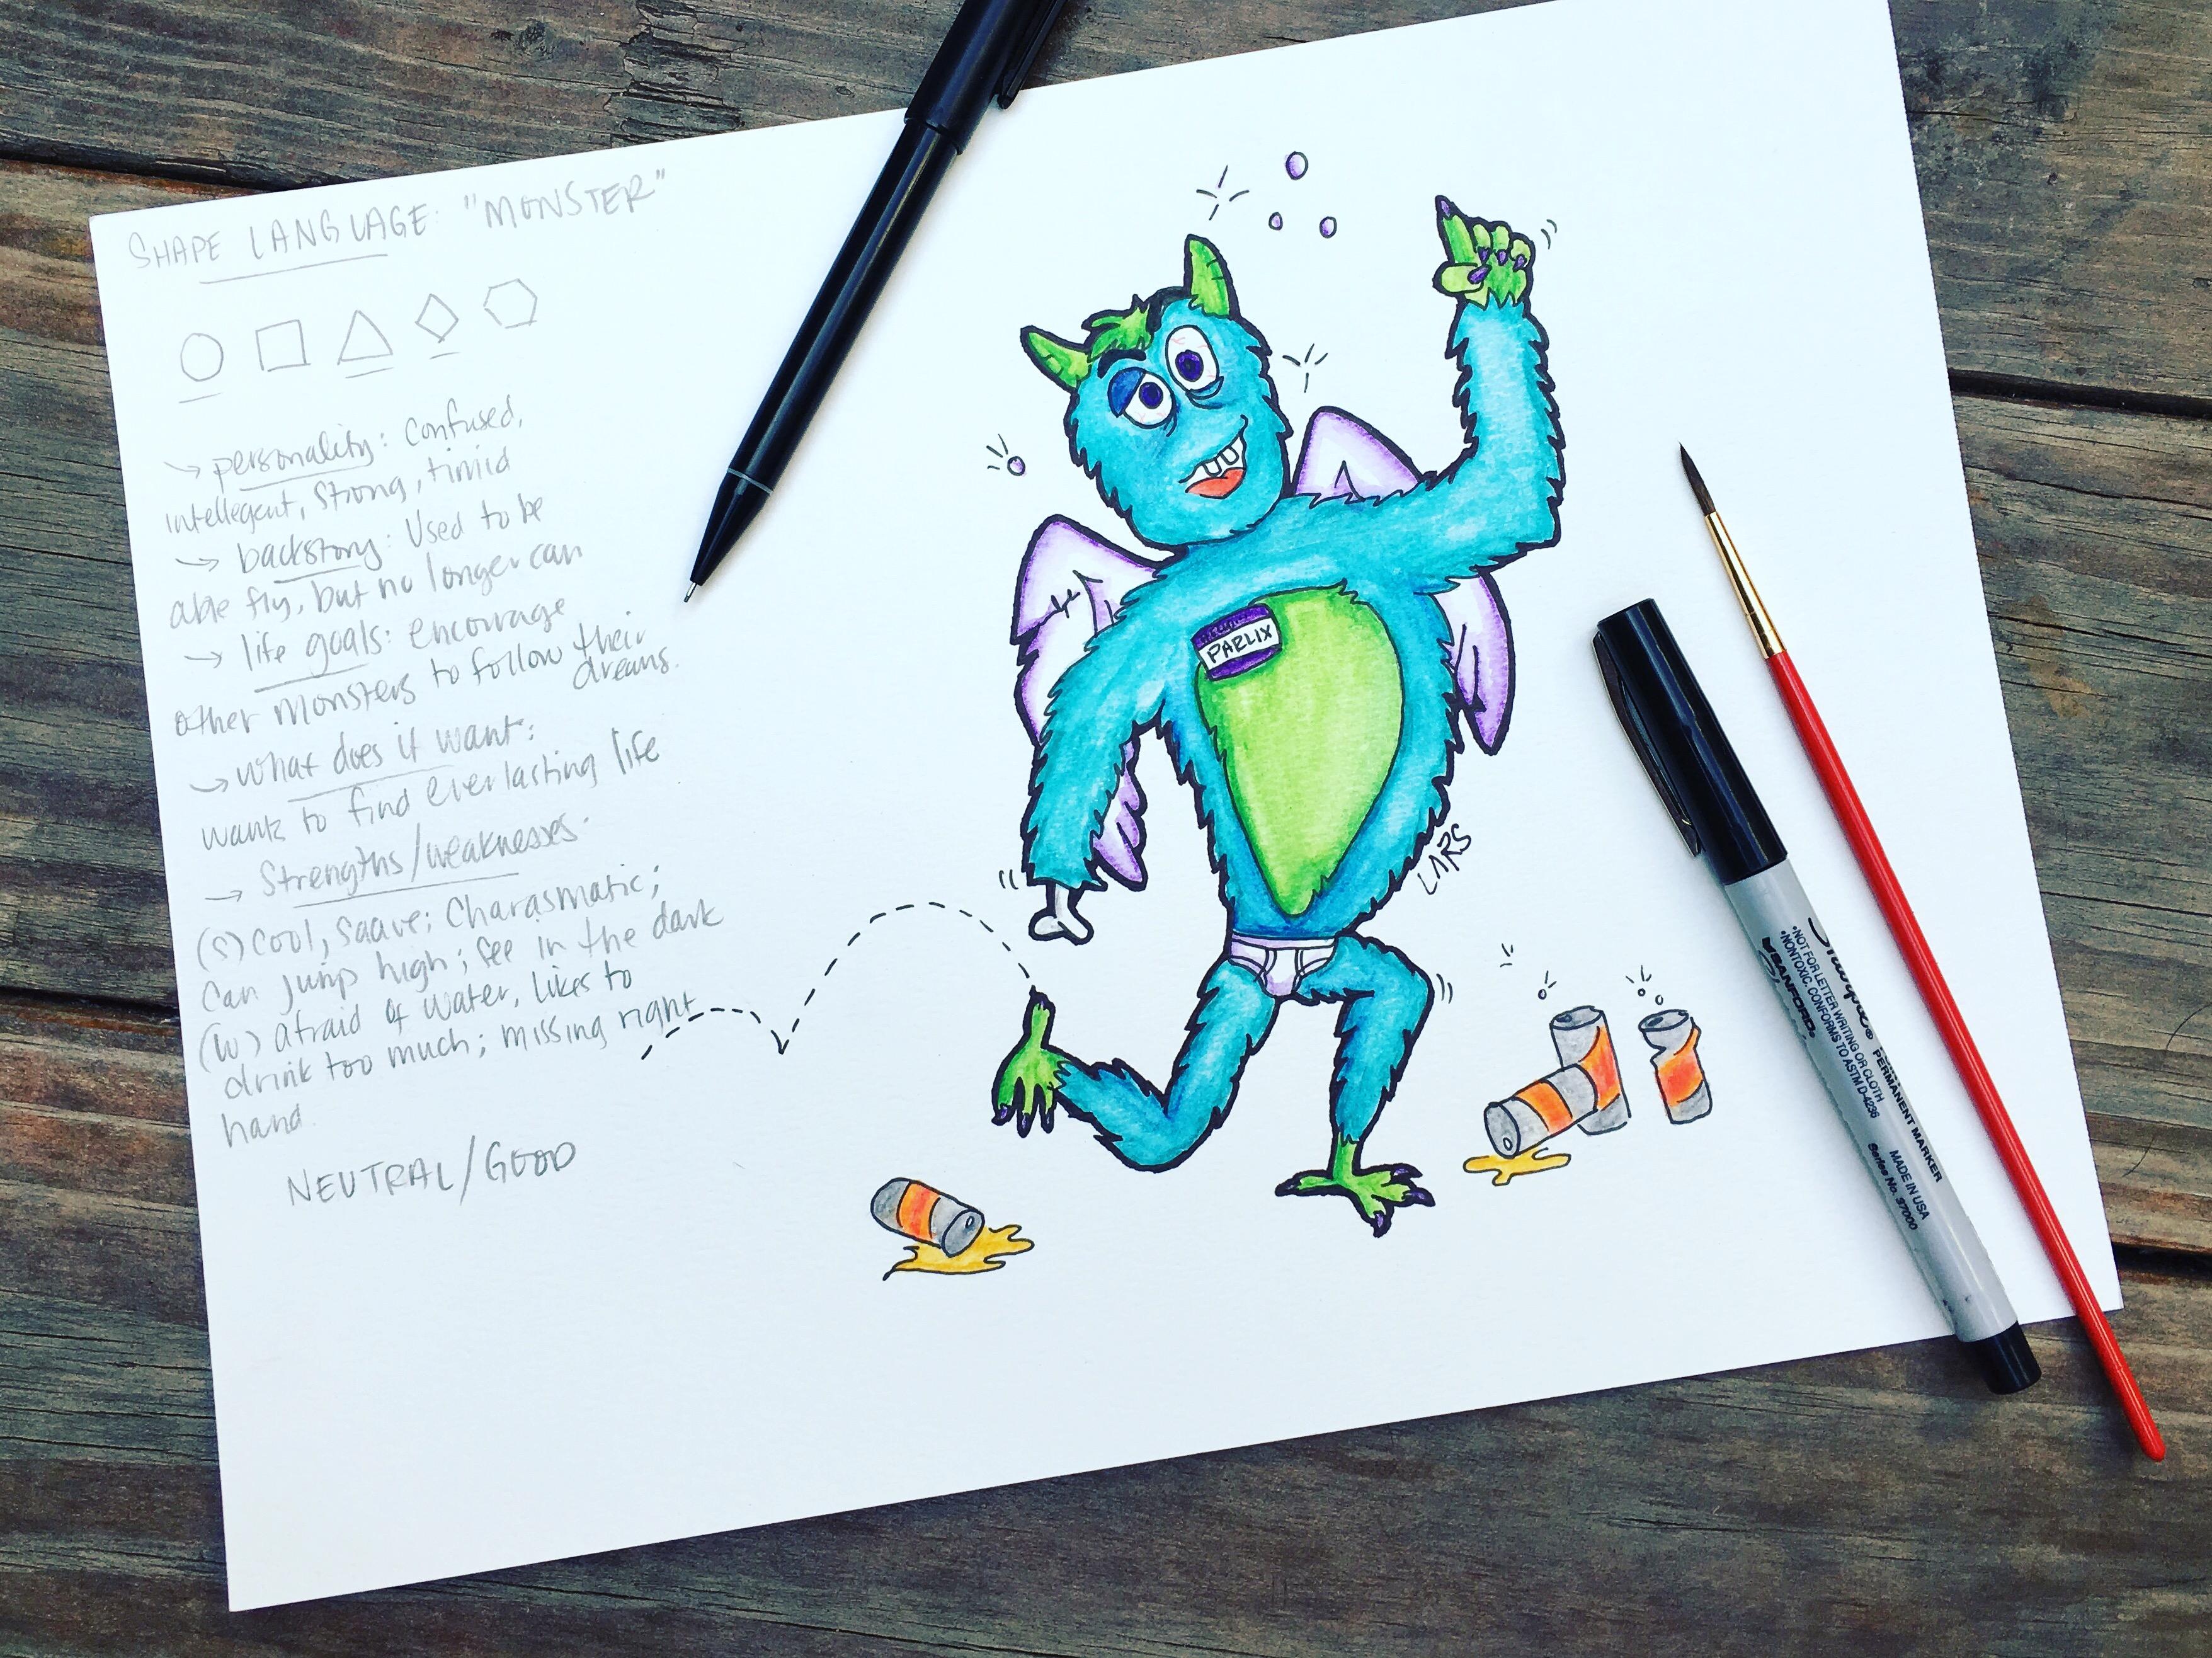 SHAPE LANGUAGE: "MONSTER"
→ personality: Confused,
intellegent, strong, timid
→ backstory: Used to be
able fly, but no longer can
→ life goals: encourage
other monsters to follow their
dreams.
→ what does it want:
wants to find everlasting life
→ Strengths/weaknesses.
(S) Cool, Suave; Charasmatic;
Can jump high; See in the dark
(W) afraid of water, likes to
drink too much; missing right
hand.
NEUTRAL/GOOD
PARLIX
LARS
Sharpie®
PERMANENT MARKER
•NOT FOR LETTER WRITING OR CLOTH
•NONTOXIC. CONFORMS TO ASTM D-4236
SANFORD®
MADE IN USA
Series No. 37000